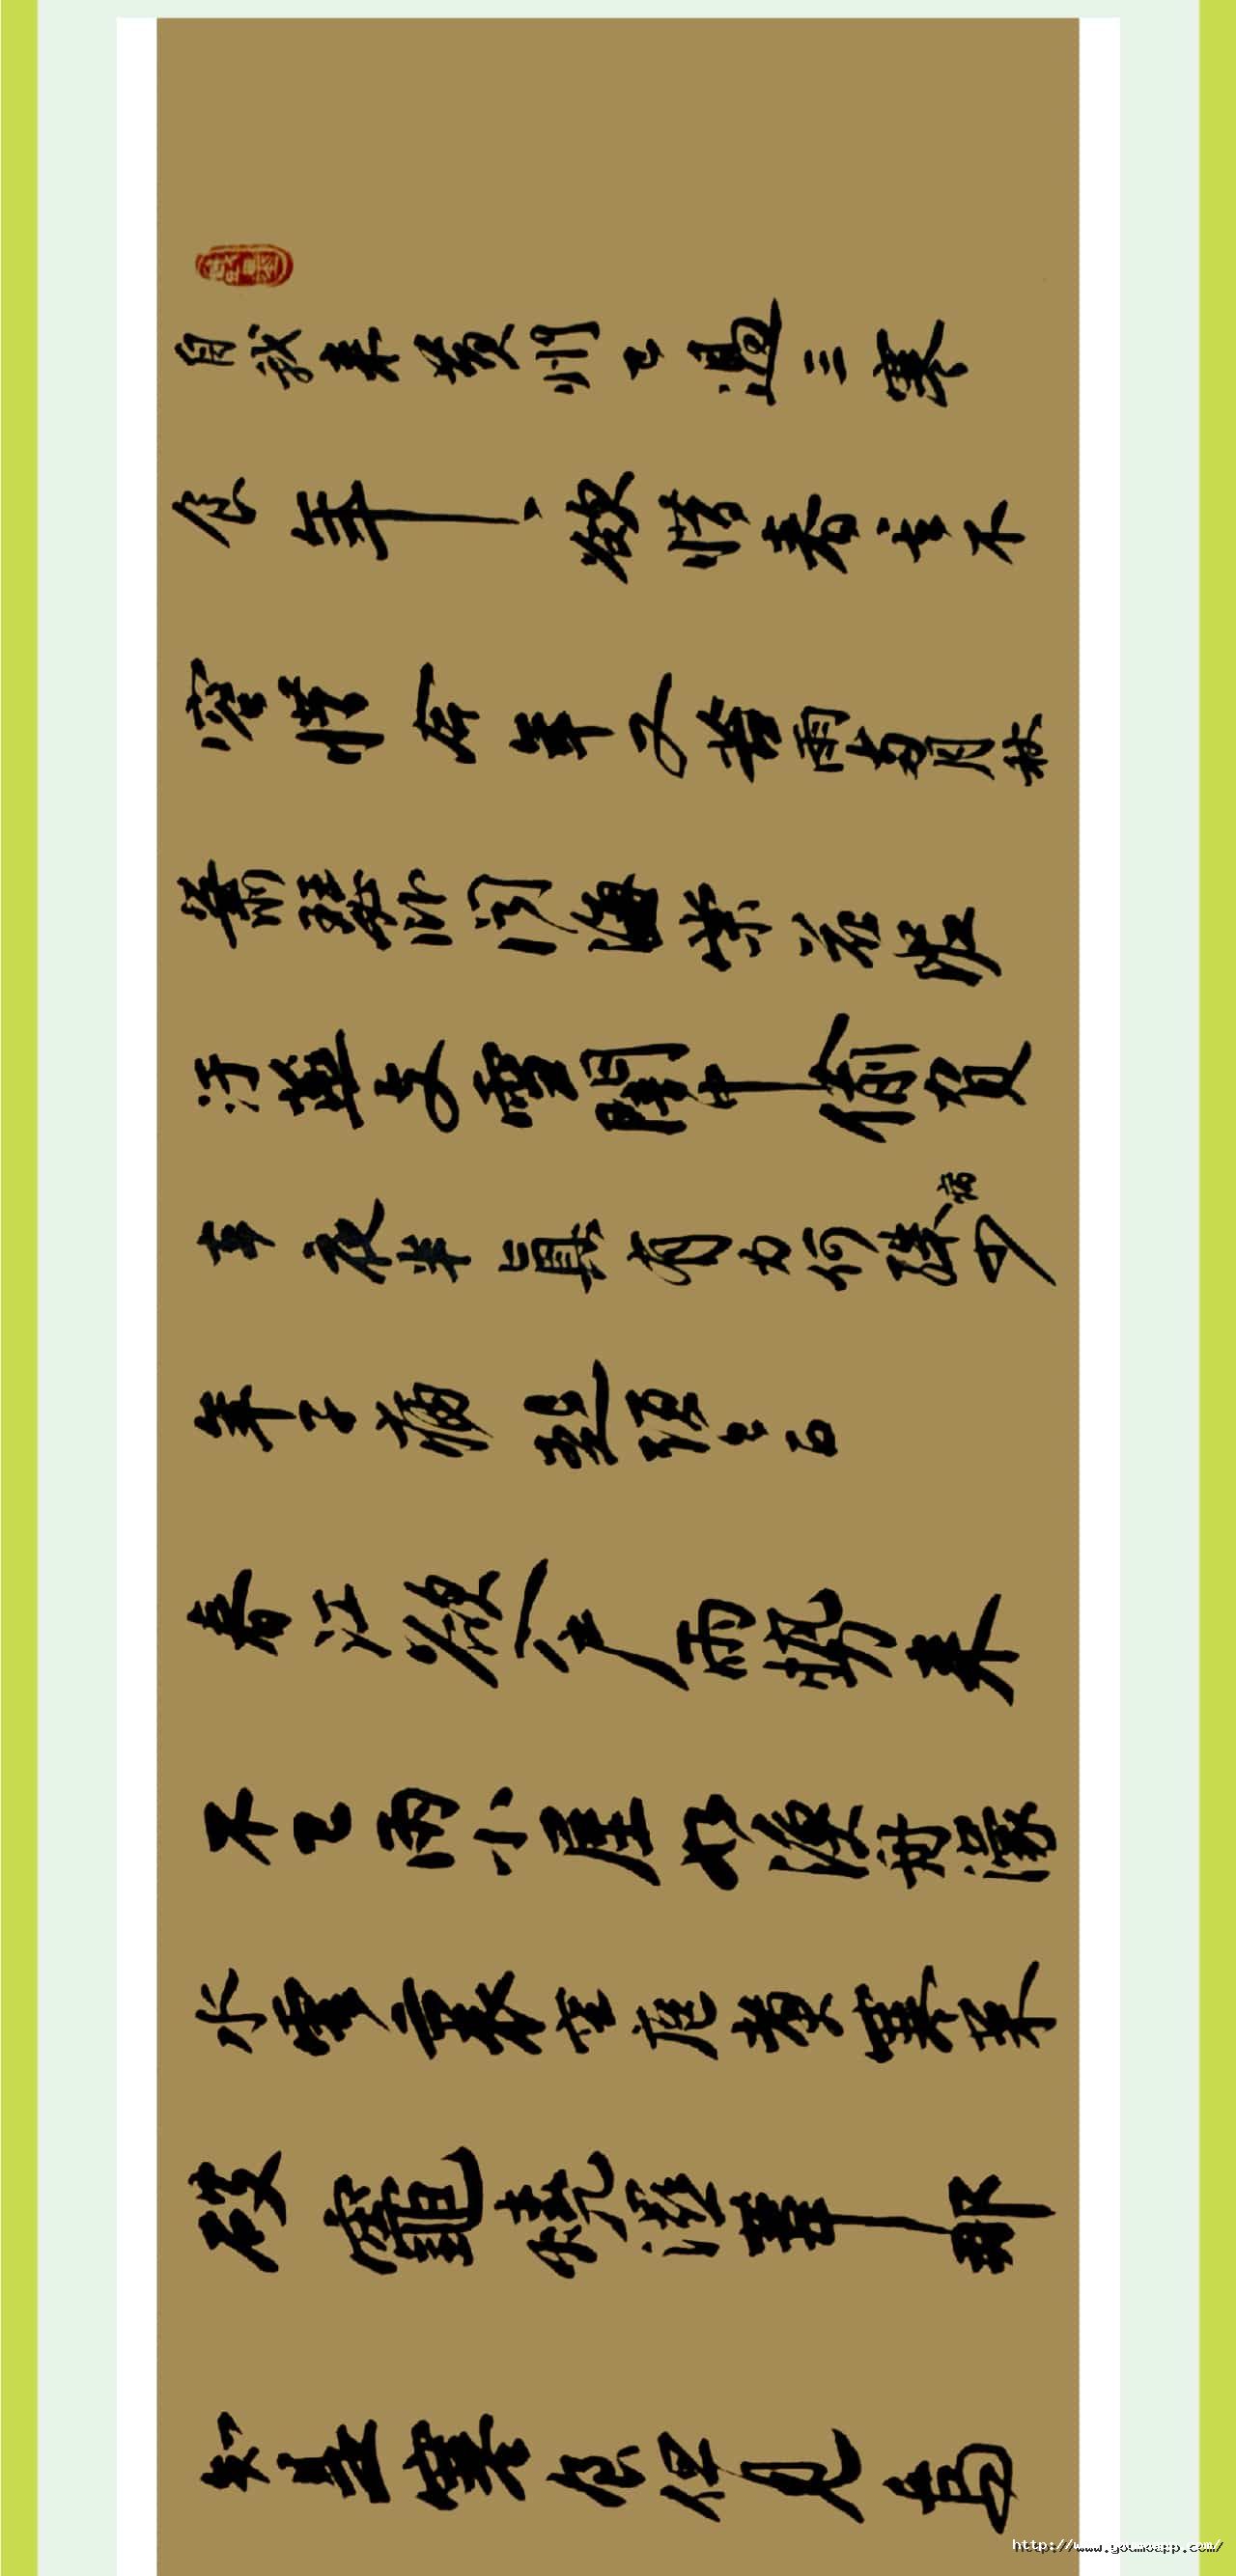 自我来黄州已過三寒
食年〻欲惜春〻去不
容惜今年又苦雨兩月秋
蕭瑟卧聞海棠花泥
汙燕支雪闇中偷負
去夜半真有力何殊病少
年子病起頭已白
春江欲入户雨勢来
不已雨小屋如漁舟濛
水雲裏空庖煮寒菜
破竈燒濕葦那
知是寒食但見烏
http://www.youmoapp.com/